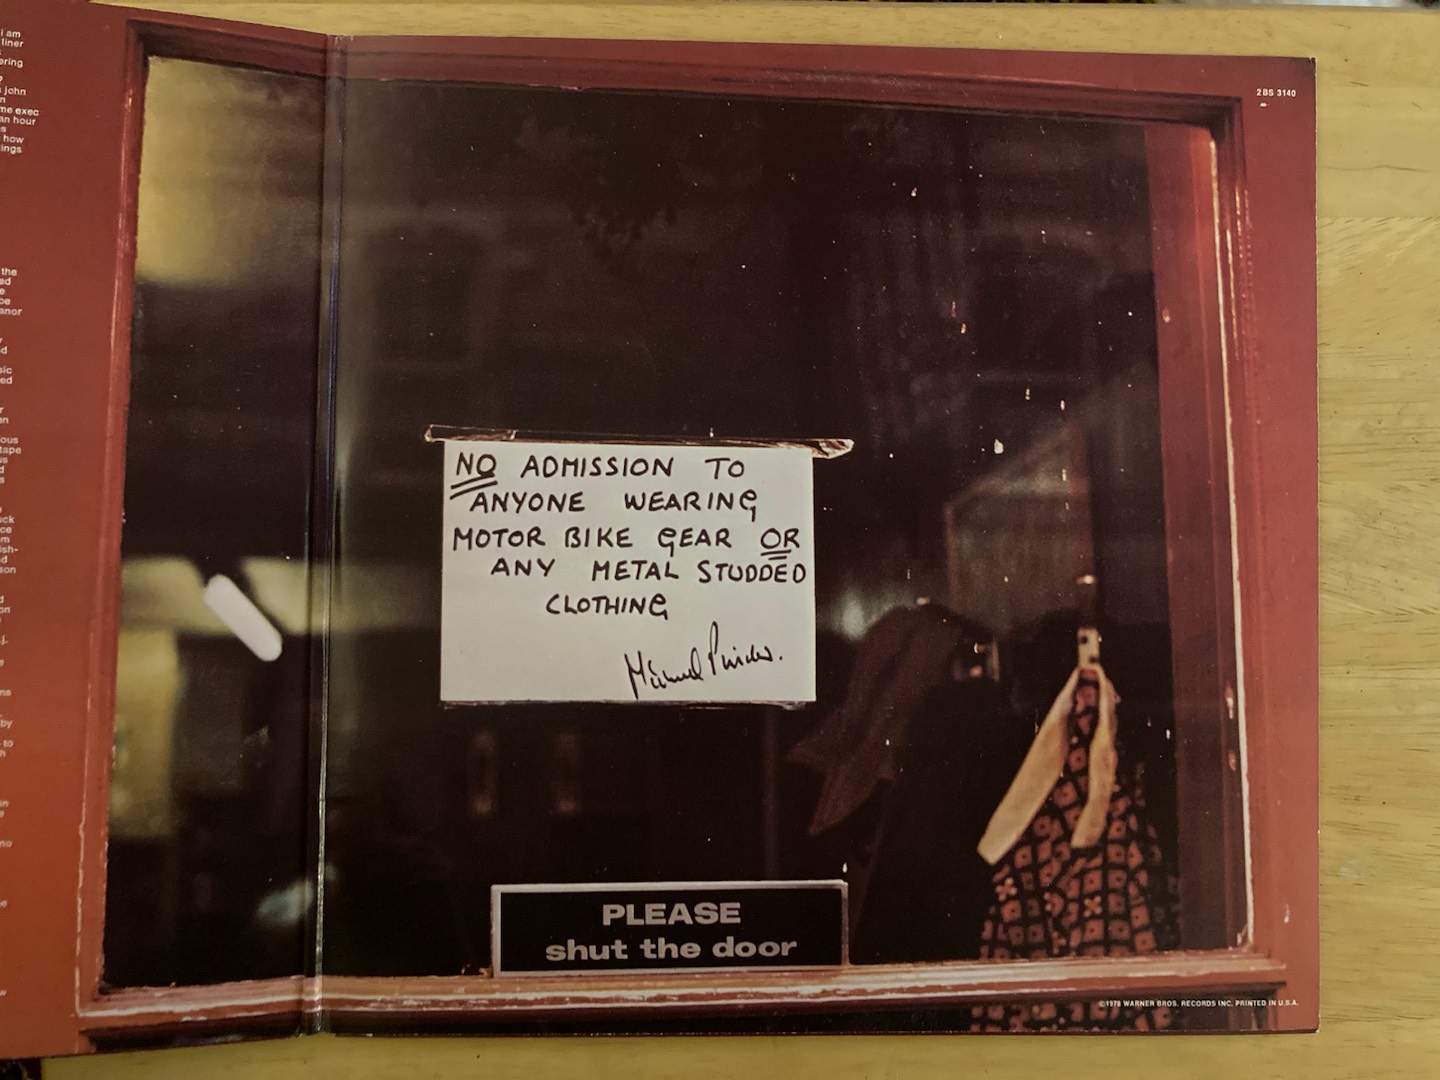 i am
liner
ering
john
me exec
an hour
how
ings
the
ed
e
be
anor
y
d
sic
ed
r
en
ous
tape
us
d
s
uck
ce
m
ish-
d
son
d
on
.j.
e
ns
by
to
h
in
e
no
w
2BS 3140
NO ADMISSION TO
ANYONE WEARING
MOTOR BIKE GEAR OR
ANY METAL STUDDED
CLOTHING
PLEASE
shut the door
©1978 WARNER BROS. RECORDS INC. PRINTED IN U.S.A.